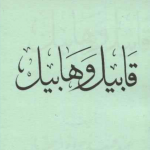 قابيل وهابيل